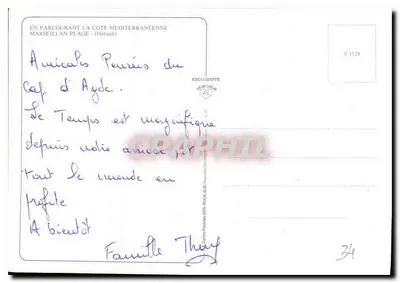 EN PARCOURANT LA COTE MEDITERRANEENNE
MARSEILLAN PLAGE - (Hérault)
Amicales Pensées du
Cap d'Agde.
Le Temps est magnifique
depuis notre arrivée et
tout le monde en
profite
A bientôt
Famille
EXCLUSIVITE
N.1128
CARTPHIL
34